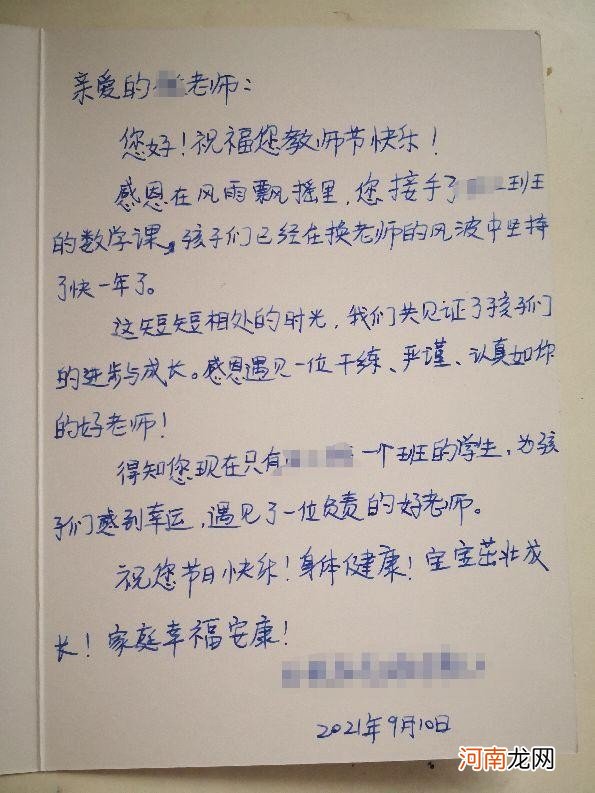 亲爱的 老师：
您好！祝福您教师节快乐！
感恩在风雨飘摇里，您接手了 班
的数学课，孩子们已经在换老师的风波中坚持
了快一年了。
这短短相处的时光，我们共见证了孩子们
的进步与成长。感恩遇见一位干练、严谨、认真如你
的好老师！
得知您现在只有 一个班的学生，为孩
子们感到幸运，遇见了一位负责的好老师。
祝您节日快乐！身体健康！宝宝茁壮成
长！家庭幸福安康！
2021年9月10日
河南龙网